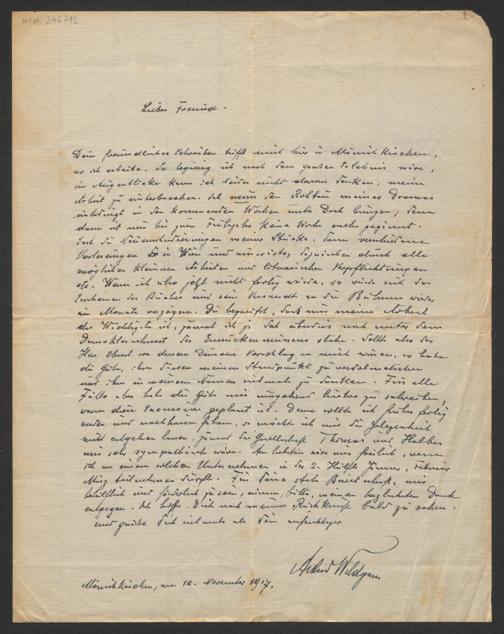 H.I.N. 246712
Lieber Freund.
Dein freundliches Schreiben trifft mich hier in Mönichkirchen,
wo ich arbeite. So begierig ich nach dem großen Erlebnis wäre,
im Augenblicke kann ich leider nicht daran denken, meine
Arbeit zu unterbrechen. Ich muss den Rohbau meines Dramas
unbedingt in den kommenden Wochen unter Dach bringen, denn
dann ist mir bis zum Frühjahr keine Woche mehr gegönnt.
meiner Stücke, dann verschiedene
Vorlesungen in Wien und auswärts, dazwischen durch alle
möglichen kleinen Arbeiten und literarischen Verpflichtungen
etc. Wenn ich also jetzt nicht fertig würde, so würde sich das
Erscheinen des Buches und sein Versandt an die Bühnen wieder
um Monate verzögern. Du begreifst, dass mir meine Arbeit
das Wichtigste ist, zumal ich ja das und unter dem
des stehe. Sollte also der
Herr Oberst von deinem Vorschlag an mich wissen, so habe
die Güte, ihm diesen meinen Standpunkt zu
und ihm in meinem Namen vielmals zu danken. Für alle
Fälle aber habe die Güte mir umgehend hierher zu schreiben,
wann diese geplant ist. Denn sollte ich früher fertig
werden und nachhause fahren, so möchte ich mir die Gelegenheit
nicht entgehen lassen, zumal die Gesellschaft Thomas und Halbes
mir sehr sympathisch wäre. Am liebsten wäre mir freilich, wenn
ich an einem solchen Unternehmen in der 2. Hälfte Jänner,
März teilnehmen dürfte. Für Deine stete Bereitschaft, mir
behilflich und förderlich zu sein, nimm, bitte, meinen herzlichsten Dank
entgegen. Ich hoffe, Dich nach meiner Rückkunft bald zu sehen,
und grüße Dich vielmals als Dein aufrichtiger
Anton Wildgans
Mönichkirchen, am 12. November 1917.